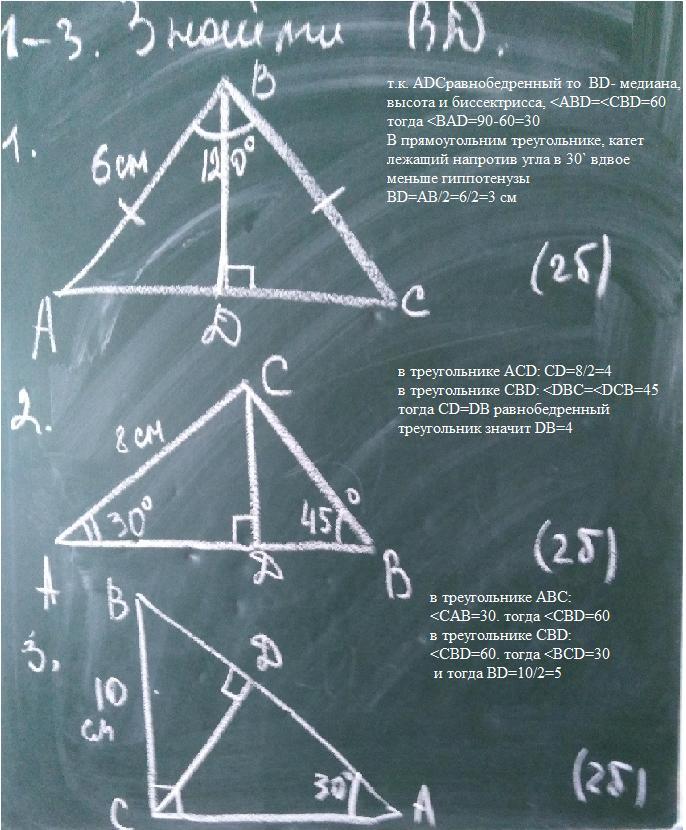 1-3. Знайти BD.
1.
B
6 см
120°
A
D
C
(2б)
т.к. ADCравнобедренный то BD- медиана,
высота и биссектрисса, <ABD=<CBD=60
тогда <BAD=90-60=30
В прямоугольним треугольнике, катет
лежащий напротив угла в 30` вдвое
меньше гиппотенузы
BD=AB/2=6/2=3 см
2.
C
8 см
30°
45°
A
D
B
(2б)
в треугольнике ACD: CD=8/2=4
в треугольнике CBD: <DBC=<DCB=45
тогда CD=DB равнобедренный
треугольник значит DB=4
3.
B
D
10
см
30°
C
A
(2б)
в треугольнике ABC:
<CAB=30. тогда <CBD=60
в треугольнике CBD:
<CBD=60. тогда <BCD=30
и тогда BD=10/2=5